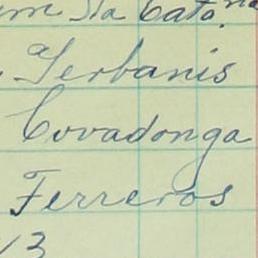 Sta Cato.
Gerbanis
Covadonga
Ferreros
13